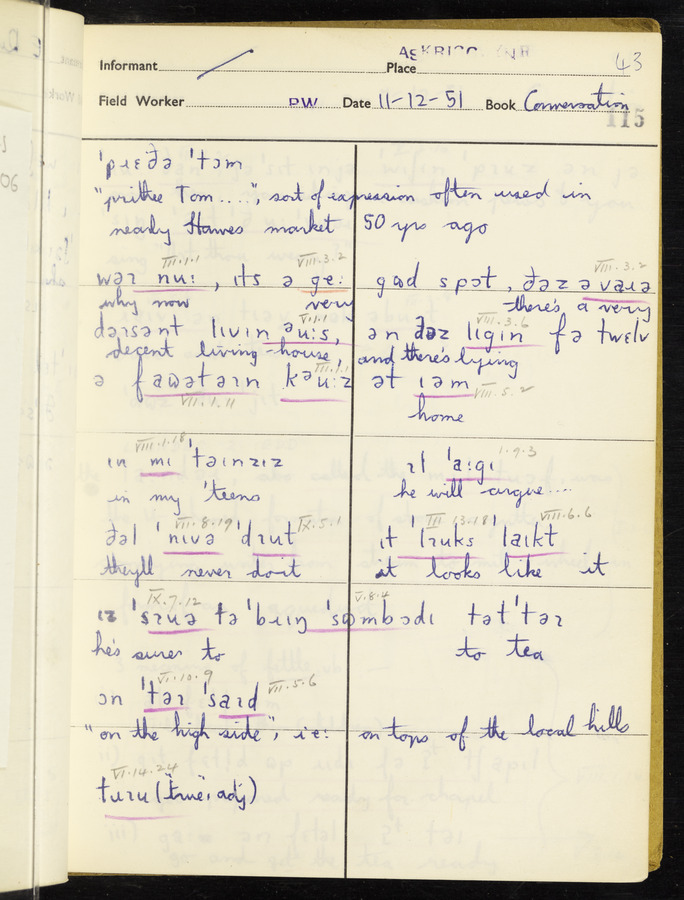 ASKRIGG
43
Informant
Place
Field Worker PW Date 11-12-51 Book Conversation
115
'pɹɛðə 'tɔm
"prithee Tom....", sort of expression often used in
nearly Hawes market 50 yrs ago
III.1.1 VIII.3.2 VIII.3.2
nu: , ɪts ə ge: gɑd spɔt , ðəz ə
why now very there's a very
V.1.1 VIII.3.6
dəɪsənt lɪvɪn əu:s, ən ðəz lɪgɪn fə twelv
decent living-house, and there's lying
III.1.1
ə kəu:z ət ɪəm VIII.5.2
VII.1.11
home
VIII.1.18 1.9.3
ɪn mɪ 'təɪnzɪz ɪl 'a:gɪ
in my 'teens he will argue....
VII.8.19 IX.5.1 III.13.18 VIII.6.6
ðəl 'nɪvə 'dɪut ɪt 'lɪuks 'laɪkt
they'll never do it it looks like it
IX.7.12 V.8.4
ɪz 'sɪuə tə 'bɪɪŋ 'sɔmbɔdɪ tət 'təɪ
he's sure to to tea
VI.10.9 VII.5.6
ɔn 'təɪ 'saɪd
"on the high side", i.e: on tops of the local hills
VI.14.24
tɪɪu ("true", adj)